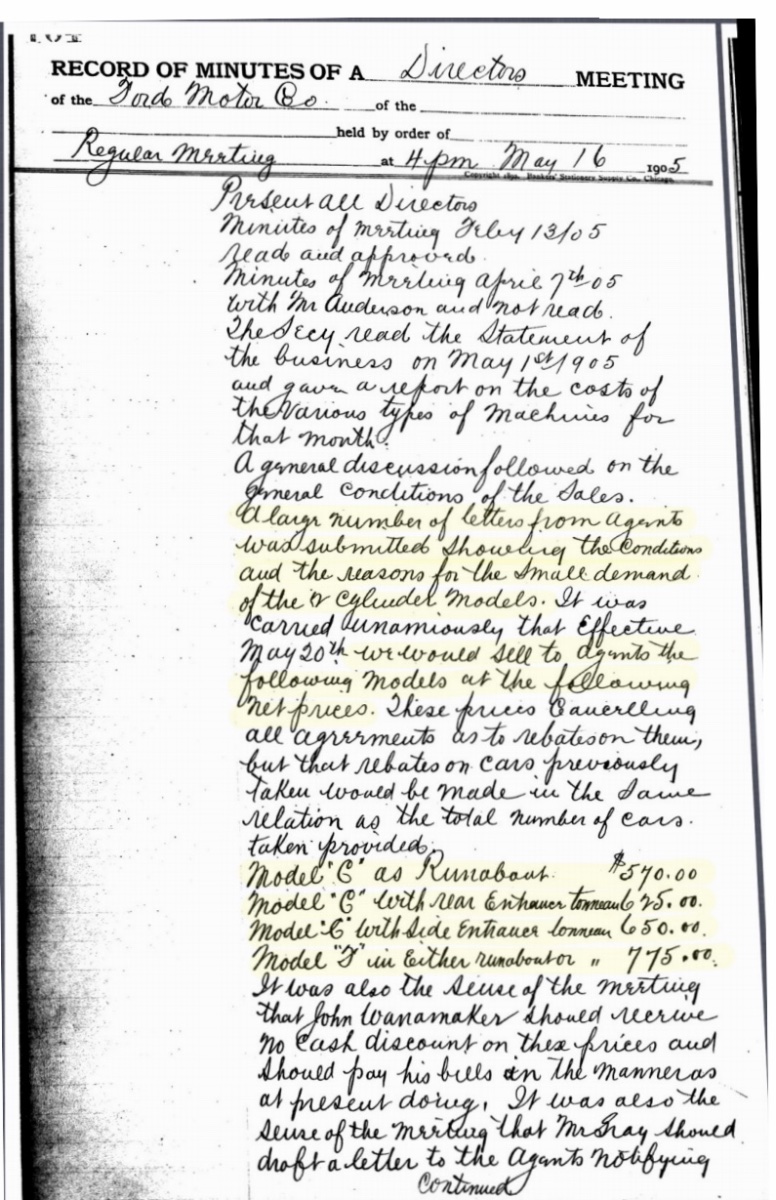 RECORD OF MINUTES OF A Directors MEETING
of the Ford Motor Co. of the
held by order of
Regular Meeting at 4 pm May 16 1905
Copyright 1890, Bankers' Stationers Supply Co., Chicago.
Present all Directors
Minutes of meeting Feby 13/05
read and approved.
Minutes of Meeting April 7th 05
with Mr Anderson and not read.
The Secy read the Statement of
the business on May 1st/1905
and gave a report on the costs of
the various types of Machines for
that month.
A general discussion followed on the
general conditions of the Sales.
A large number of letters from Agents
was submitted showing the Conditions
and the reasons for the Small demand
of the 2 Cylinder Models. It was
Carried unamiously that Effective
May 20th we would sell to Agents the
following Models at the following
net prices. These prices Cancelling
all agreements as to rebates on them,
but that rebates on cars previously
taken would be made in the same
relation as the total number of cars
taken provided.
Model "C" as Runabout. $570.00
Model "C" with rear Entrance tonneau 625.00.
Model "C" with Side Entrance tonneau 650.00.
Model "F" in Either runabout or " 775.00.
It was also the Sense of the meeting
that John Wanamaker should receive
no Cash discount on these prices and
should pay his bills in the manner as
at present doing. It was also the
sense of the meeting that Mr Gray should
draft a letter to the Agents notifying
Continued